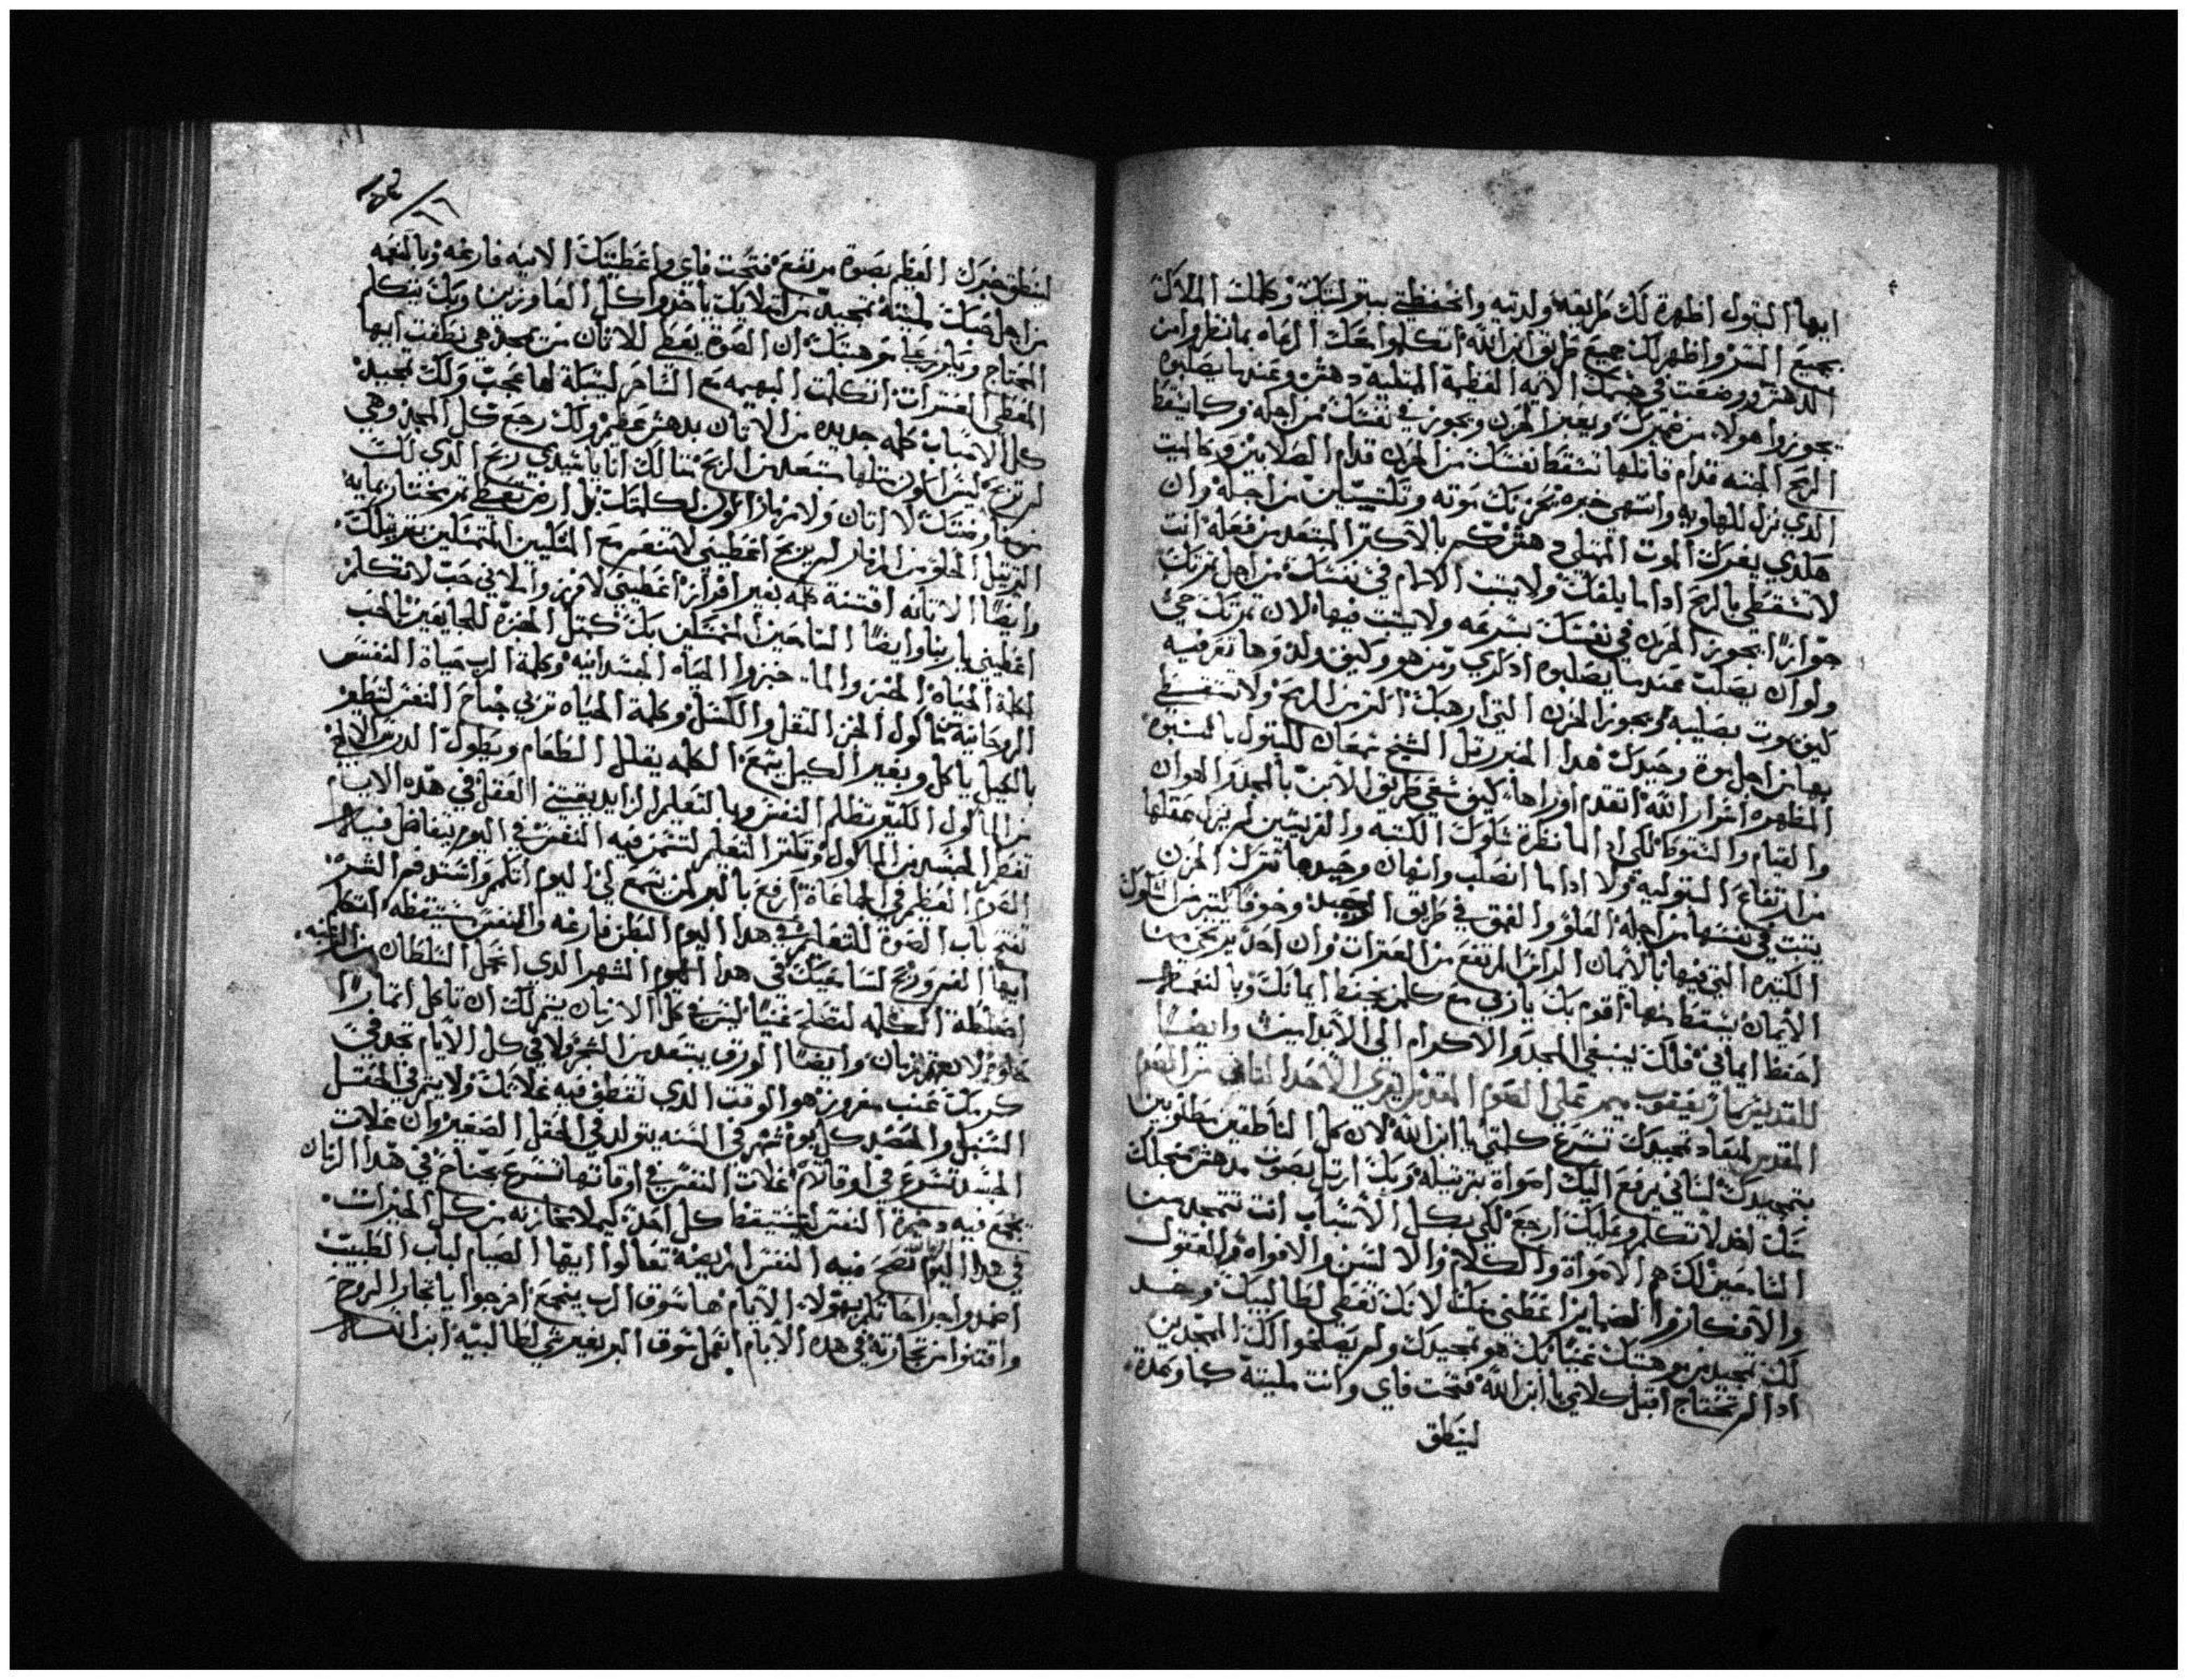 ايها البتول اظهرة لك طريقه ولدتيه وانحفظتي ببتوليتك وكلمك الملاك
بجميع السر واظهر لك جميع طرايق ابن الله اتكلموا معك الرعاه بما نظروا من
الدهش ووضعت في الايه العظيمة المتليه دهش وعندما يصلبوه
يجوزوا هولاء من ضميرك وبغير الحزن ويجوز في نفسك من اجله وكما يسقط
الرمح الجنبه قدام قاتلها تسقط نفسك من الحزن قدام الصالابين وكالميت
الذي نزل للهاويه وانتهى خبره تحزنك موته من اجله وان
هكدي يعترك الموت المتلي دهش كم بالاكتر المبتعد من فعله انت
لا تسقطي بالرمح اداما بلغك ولا يتبت الالام في نفسك من اجل تمرتك
جوازاً يجوز الحزن في نفسك بسرعه ولا يتبت فيها لان تمرتك حي
ولو ان يصلب عندما يصلبوه ادكري ومن هو وكيف ولد وها تعرفيه
كيف يموت بصليبه ويجوز الحزن التي ارهبك اكتر من الرمح ولا تسقطي
بها من اجل موت وحيدك هدا الخبر رتل الشيخ سمعان للبتول بالنبوه
المظهره اسرار الله اتقدم اوراها كيف سعي طريق الابن بالمجد والهوان
والقيام والسقوط لكي اداما نظرة شكوك الكتبه والفريسيين لم ينزل عقلها
من ارتفاع البتوليه ولا اداما انصلب وانهان وحيدها تترك الحزن
يتبت في نفسها من اجله العلو والعمق في طريق الوحيد وخوفا كتير من الشكوك
الكتيره التي فيها بالايمان الرامز المرتفع من العترات وان احد يرتخي من
الايمان يسقط منها اقوم بك يا ربي مع كلمن يحفظ ايمانك وبالنعمه
احفظ ايماني فلك ينبغي المجد والاكرام الى الابد امين وايضاً
للقديس مار يعقوب ميمر على الصوم المقدس يقري الاحد التاني من الصوم
المقدس لميعاد تمجيدك تسرع كلمتي يا ابن الله لان كل الناطقين مطلوبين
بتمجيدك لساني يرفع اليك اصواة بترتيله وبك ارتل بصوت مدهش من اجلك
منك اخد لاتكلم وعليك ارجع لكي بكل الاسباب انت تتمجد من
الناجيين لك هم الاصواة والكلام والالسن والافواه والعقول
والافكار والضماير اعطني منك لانك تعطي لطالبيك وخد
لك تمجيد من موهبتك غنياً بك هو تمجيدك ولم يصلحوا لك الممجدين
ادا لم تحتاج اقبل كلامي يا ابن الله فتحت فاي وانت مليته كما وعدة
لينطق
لينطق خبرك العظيم بصوة مرتفع فتحت فاي واعطيتك الانيه فارغه وبالنعمه
من اجل حبك لمليته تمجيد من امتلايك ياخدوا كل العاوزين وبك يتكلم
المحتاج موهبتك ان الصوة يعطى للاتان من مجد هي نطقت ايها
المعطي العترات اتكلمت البهيمه مع الساحر لتبكته لها عجب ولك تمجيد
كل الاسباب كله جديده من الاتان بدهش عظيم ولك رجع كل المجد وهي
لم ليس اكون متلها مبتعد من الربح متالك انا يا سيدي ربح الدي لك
لا اتان ولا مزمار اكون لكلمتك بل ارض تعطي تمر بمايه
الترتيل الحلو من المزمار لم يربح اعطيني لانتصر مع المتليين المتمتلين بترتيلك
وايضاً الاتانه اقتنت كله بغير اقرار اعطيني لافرز والا في حب لاتكلم
اعطيني يا ربنا وايضاً الناجين الممتلين بك كمتل الخبزه للجايعين بالحب
كلمة الحياه الخبز والماء خبزوا الحياه الجسدانيه وكلمة الرب حياة النفس
الروحانيه من ماكول الخبز التقل والكسل وكلمة الحياه تربي جناح النفس لتطير
بالكيل ياكل وبغير الكيل يسمع الكلمه يقلل الطعام ويطول الدرس الالهي
من الماكول الكتير تظلم النفس وبالتعليم الزايد يغتني العقل في هده الايام
تفطر الجسد من الماكول وتكتر التعليم لتشمر فيه النفس في اليوم يتفاضل فيه
الصوم العظيم في الجماعاة ارفع بالترلمن تسمع لي اليوم اتكلم واشتد فم الشره
تفتح باب الصوة للتعليم في هدا اليوم البطن فارغه والنفس مستيقظه اتكلم
ايها الغير ونجح لسامعيك في هدا اليوم الشهر الدي
الكلمه لتصلح غنياً ليس في كل الازمان يتم لك ان تاكل اتماراً
لان لهم زمان وايضاً الورق يبتعد من الشجر ولا في كل الايام تجد في
كرمك عنب مفروز هو الوقت الدي تقطف فيه غلاتك ولا يتم في الحقل
السنبل والحصد كل يوم شهر في السنه يتولد في الحقل الصغير وان غلات
الجسد تسرع في اوقاتهم غلات النفس في اوقاتها تسرع بجناح في هدا الزمان
يجمع فيه دخيرة النفس ليستيقظ كل احد ليملا مخازنه من كل الخيرات
في هدا اليوم تصح فيه النفس المريضه تعالوا ايها الصيام لباب الطبيب
اضمدوا جراحاتكم بهولاء الايام ها سوق الرب يتجمع افرحوا يا تجار الروح
واقتنوا من تجارته في هده الايام اتملي سوق البر بغير شي لطالبيه ابن الله